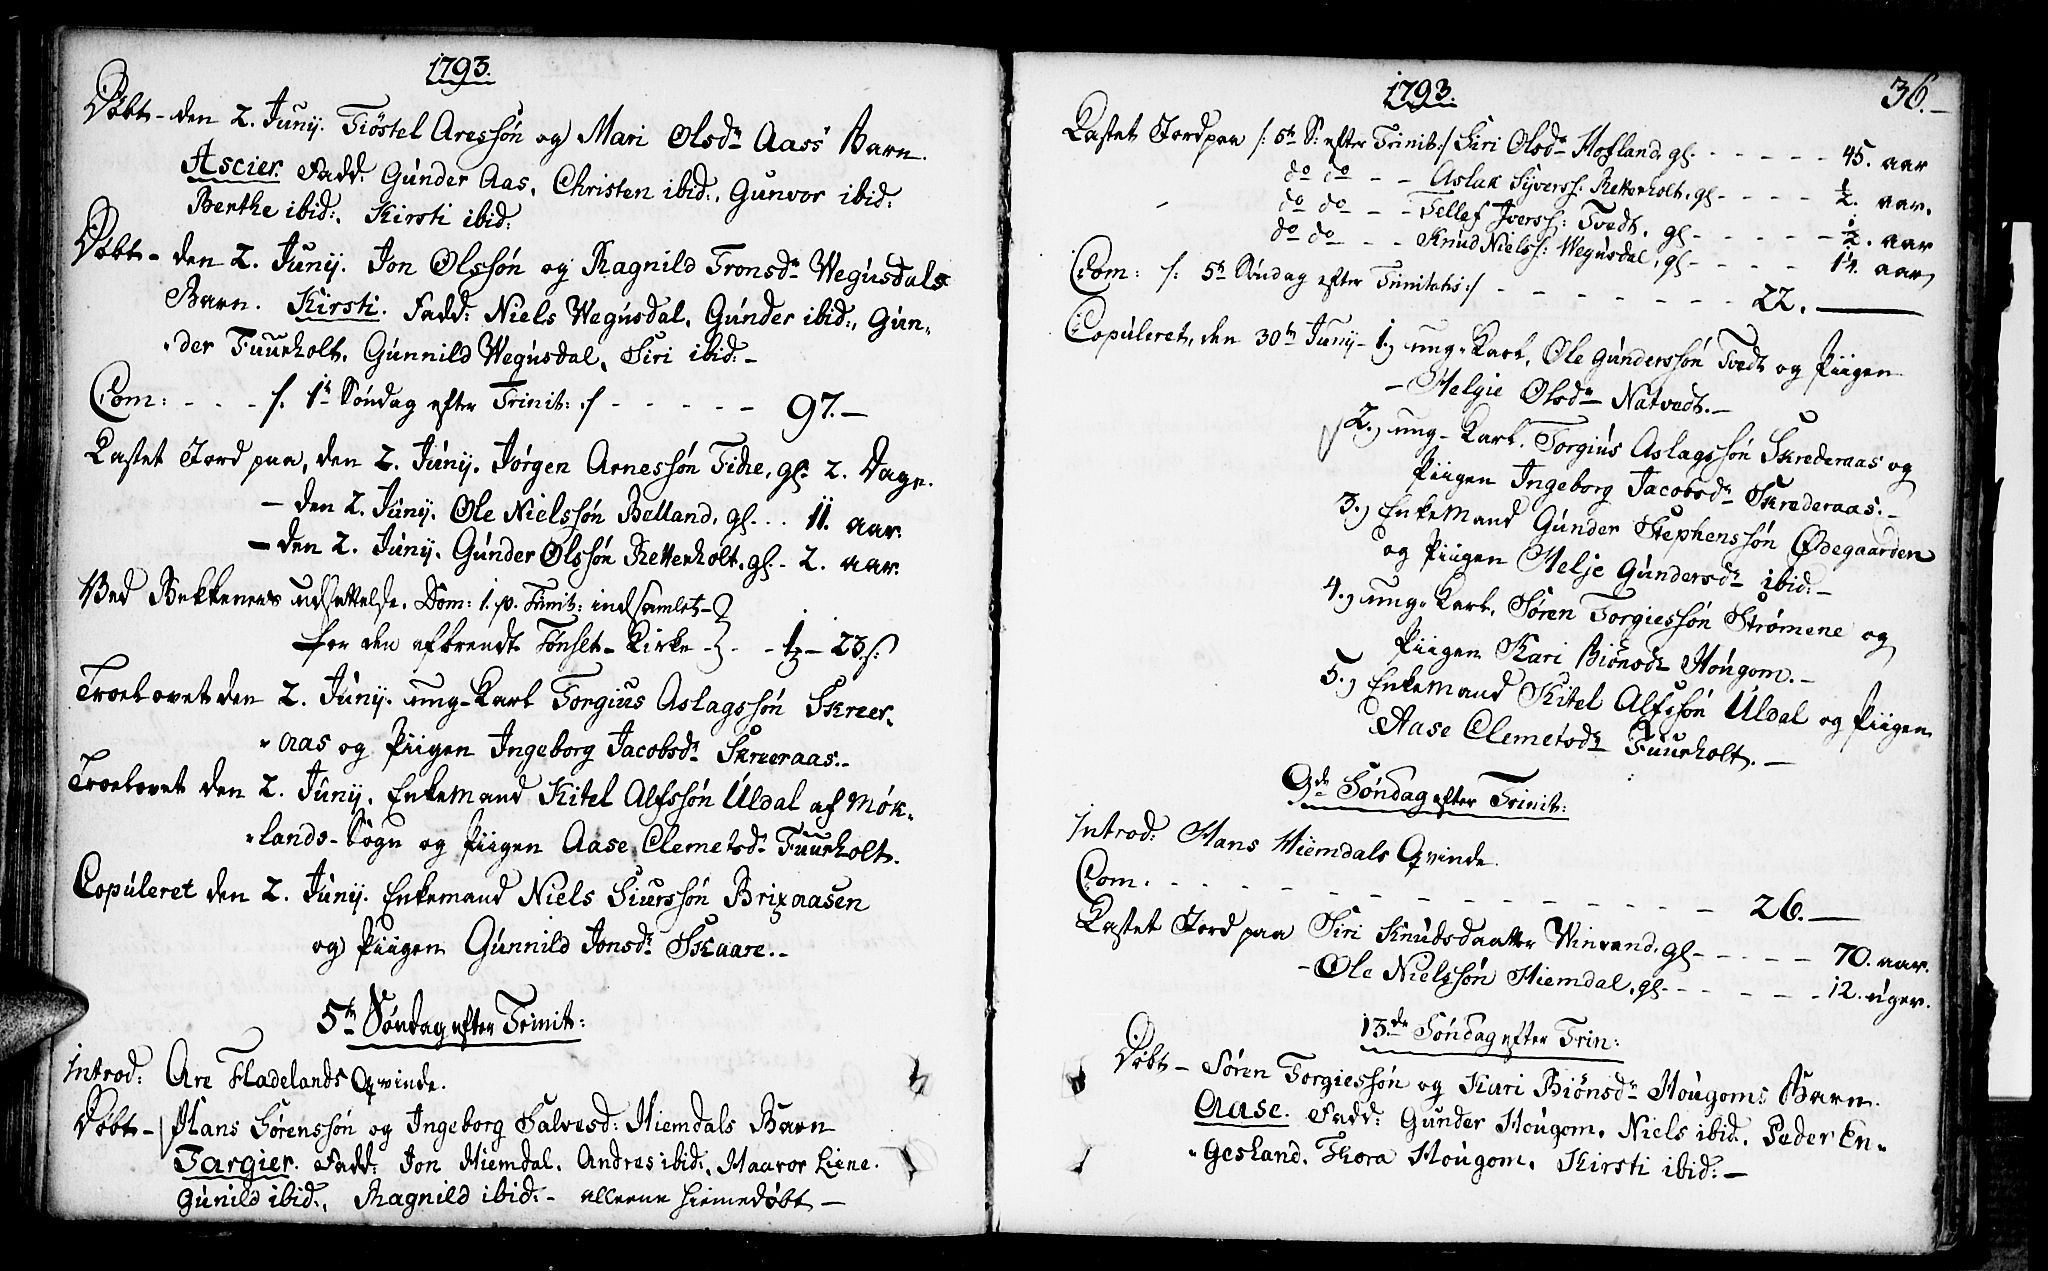 1793.
Døbt - den 2. Junij. Tiøstel Aressøn og Mari Olsdr Aass Barn.
Ascier. Fadd: Gunder Aas, Christen ibid:, Gunvor ibid:
Berthe ibid:, Kirsti ibid:
Døbt - den 2. Junij. Jon Olssøn og Ragnild Tronsdr Wegusdals
Barn. Kirsti. Fadd: Niels Wegusdal, Gunder ibid:, Gun-
der Tuurholt, Gunnild Wegusdal, Siri ibid: -
Com: - - - /: 1te Søndag efter Trinit: :/ - - - - - 97. -
Kastet Jord paa, den 2. Junij. Jørgen Arnessøn Tidre, gl: 2. Dage.
- den 2. Junij. Ole Nielssøn Belland, gl. . . 11. aar.
- den 2. Junij. Gunder Olssøn Retterholt, gl: - 2. aar.
Ved Bekkenens udsættelse, Dom: 1. p. Trinit: indsamlet -
for den afbrendte Tønset - Kirke - - - 23 s:
Troelovet den 2. Junij. ung-Karl Torgius Aslagssøn Skreer-
aas og Piigen Ingeborg Jacobsdr Skreeraas. -
Troelovet den 2. Junij. Enkemand Kitel Alfssøn Uldal af Møk-
lands-Sogn og Piigen Aase Clemetsdr Tuurholt.
Copuleret den 2. Junij. Enkemand Niels Siurssøn Brixaasen
og Piigen Gunnild Jonsdr Skaare. -
5te Søndag efter Trinit:
Introd: Are Fladelands Qvinde.
Døbt - Hans Sørenssøn og Ingeborg Salvesd: Hiemdals Barn
Targier. Fadd: Jon Hiemdal, Andres ibid:, Haavor Liene.
Gunild ibid:, Ragnild ibid: - allerene hiemedøbt -
1793.
36. -
Kastet Jord paa /: 5te S: efter Trinit: :/ Siri Olsdr Hofland, gl. - - - - - 45. aar
do do - - Aslak Syverss: Retterholt, gl - - - - ½. aar.
do do - - Tellef Iverss: Tvedt, gl - - - - - ½. aar
do do - - Knud Nielss: Wegusdal, gl - - - - 14. aar
Com: /: 5te Søndag efter Trinitatis :/ - - - - - - - 22. -
Copuleret, den 30te Juny - 1., ung-Karl, Ole Gunderssøn Tvedt og Piigen
- Helgie Olsdr Natvedt. -
2., ung-Karl, Torgius Aslagssøn Skrederaas og
Piigen Ingeborg Jacobsdr Skrederaas. -
3., Enkemand Gunder Stephenssøn Ødegaarden
og Piigen Helje Gundersdr ibid: -
4., ung-Karl, Søren Torgiessøn Strømene og
Piigen Kari Biønsdr Hougom. -
5., Enkemand Kitel Alfssøn Uldal og Piigen
Aase Clemetsdr Tuurholt. -
9de Søndag efter Trinit:
Introd: Hans Hiemdals Qvinde.
Com: - - - - - - - - - - - - 26. -
Kastet Jord paa Siri Knudsdaatter Winrand, gl - - - - - 70. aar.
- Ole Nielssøn Hiemdal, gl. - - - - - - 12. uger.
13de Søndag efter Trin:
Døbt - Søren Torgiessøn og Kari Biønsdr Hougoms Barn.
Aase. Fadd: Gunder Hougom, Niels ibid:, Peder En-
gesland, Thora Hougom, Kirsti ibid: -